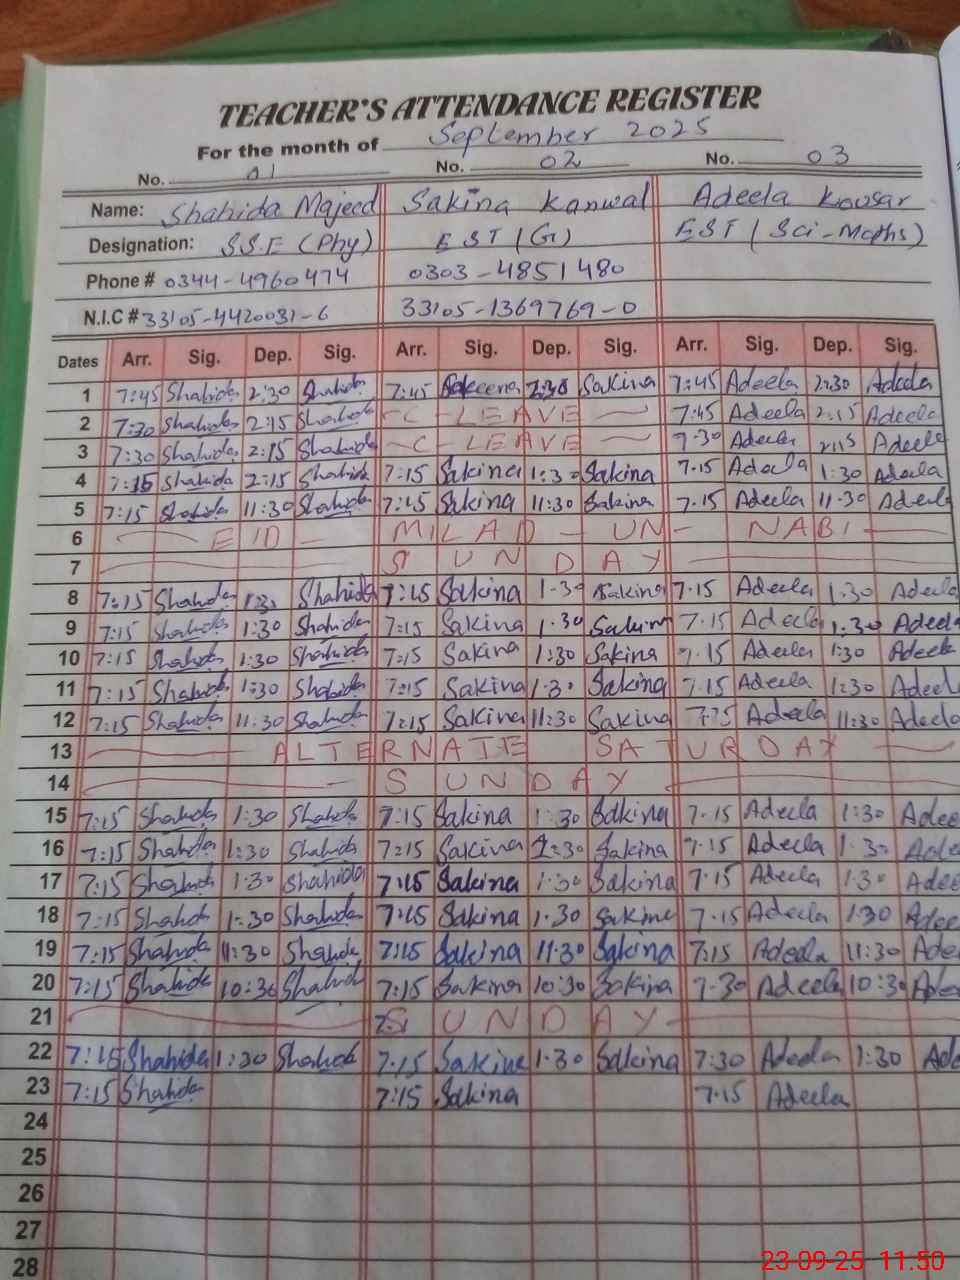 TEACHER'S ATTENDANCE REGISTER
For the month of September 2025
No. 01 No. 02 No. 03
Name: Shahida Majeed Sakina Kanwal Adeela Kousar
Designation: S.S.E (Phy) EST (G) EST (Sci-Maths)
Phone # 0344-4960474 0303-4851480
N.I.C # 33105-4420031-6 33105-1369769-0
Dates Arr. Sig. Dep. Sig. Arr. Sig. Dep. Sig. Arr. Sig. Dep. Sig.
1 7:45 Shahida 2:30 Shahida 7:45 Sakeena 2:30 Sakina 7:45 Adeela 2:30 Adeela
2 7:30 Shahida 2:15 Shahida C-LEAVE 7:45 Adeela 2:15 Adeela
3 7:30 Shahida 2:15 Shahida C-LEAVE 7-30 Adeela 2:15 Adeela
4 7:15 Shahida 2:15 Shahida 7:15 Sakina 1:30 Sakina 7-15 Adeela 1:30 Adeela
5 7:15 Shahida 11:30 Shahida 7:15 Sakina 11:30 Sakina 7.15 Adeela 11-30 Adeela
6 EID - MILAD - UN - NABI
7 SUNDAY
8 7:15 Shahida 1:30 Shahida 7:15 Sakina 1-30 Sakina 7.15 Adeela 1.30 Adeela
9 7:15 Shahida 1:30 Shahida 7:15 Sakina 1.30 Sakina 7.15 Adeela 1:30 Adeela
10 7:15 Shahida 1:30 Shahida 7:15 Sakina 1:30 Sakina 7.15 Adeela 1:30 Adeela
11 7:15 Shahida 1:30 Shahida 7:15 Sakina 1:30 Sakina 7.15 Adeela 1:30 Adeela
12 7:15 Shahida 11:30 Shahida 7:15 Sakina 11:30 Sakina 7:15 Adeela 11:30 Adeela
13 ALTERNATE SATURDAY
14 SUNDAY
15 7:15 Shahida 1:30 Shahida 7:15 Sakina 1:30 Sakina 7.15 Adeela 1:30 Adee
16 7:15 Shahida 1:30 Shahida 7:15 Sakina 1:30 Sakina 7.15 Adeela 1.30 Ade
17 7:15 Shahida 1:30 Shahida 7:15 Sakina 1:30 Sakina 7.15 Adeela 1.30 Adee
18 7:15 Shahida 1:30 Shahida 7:15 Sakina 1.30 Sakina 7.15 Adeela 1.30 Adee
19 7:15 Shahida 11:30 Shahida 7:15 Sakina 11:30 Sakina 7:15 Adeela 11:30 Ade
20 7:15 Shahida 10:30 Shahida 7:15 Sakina 10:30 Sakina 7-30 Adeela 10:30 Adee
21 SUNDAY
22 7:15 Shahida 1:30 Shahida 7:15 Sakina 1.30 Sakina 7:30 Adeela 1:30 Ade
23 7:15 Shahida 7:15 Sakina 7.15 Adeela
24
25
26
27
28
23-09-25 11.50